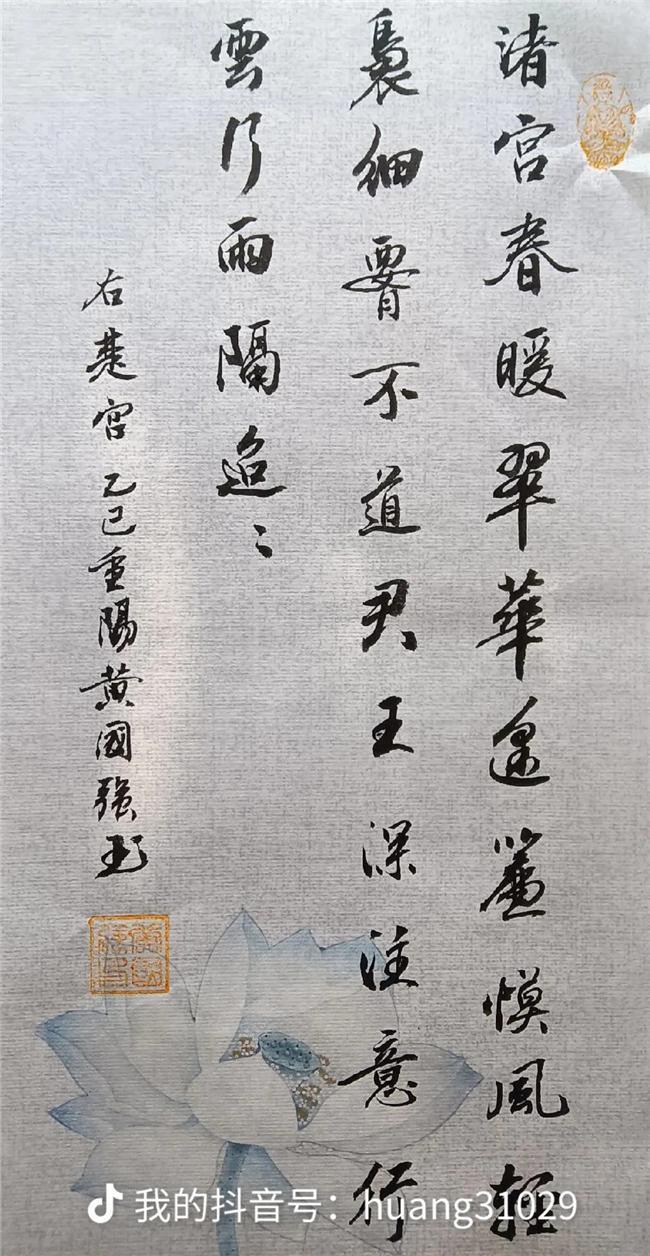 渚宫春暖翠華遥簾幙風輕
裊細腰不道君王深注意行
雲行雨隔迢〻
右楚宫 乙巳重陽黄國强书
我的抖音号：huang31029